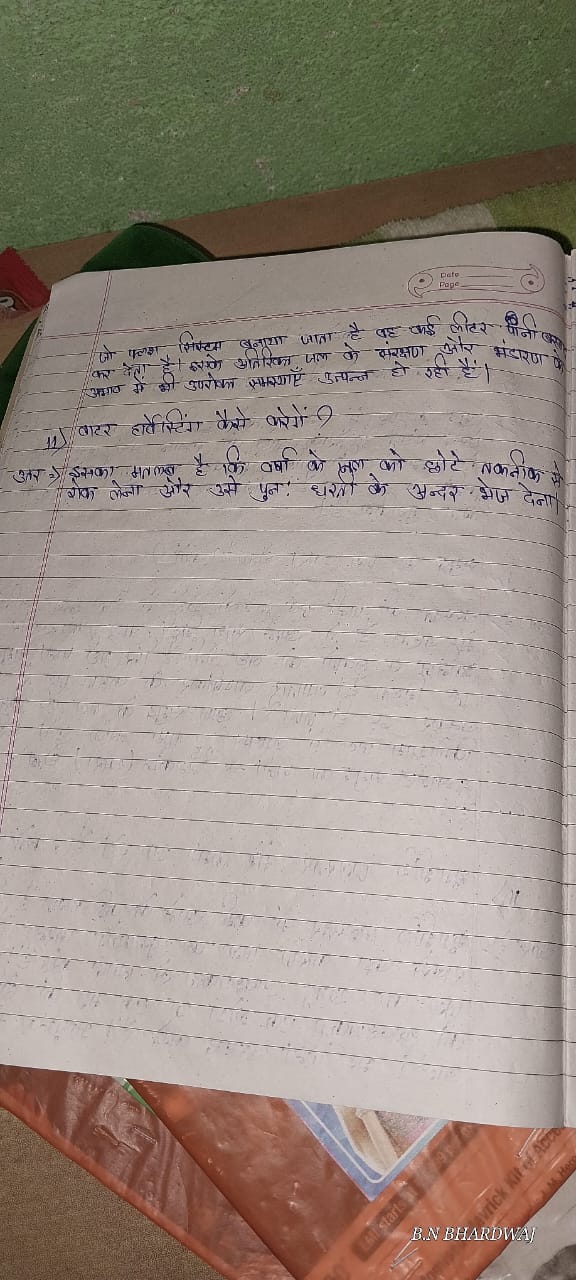 Date
Page
जो फ्लश सिस्टम बनाया जाता है वह कई लीटर पानी
कर देता है। इसके अतिरिक्त जल के संरक्षण और भंडारण के
अभाव में भी उपरोक्त समस्याएँ उत्पन्न हो रही हैं।
11) वाटर हार्वेस्टिंग कैसे करेगें ?
उतर => इसका मतलब है कि वर्षा के जल को छोटे तकनीक से
रोक लेना और उसे पुन: धरती के अन्दर भेज देना।
B.N BHARDWAJ